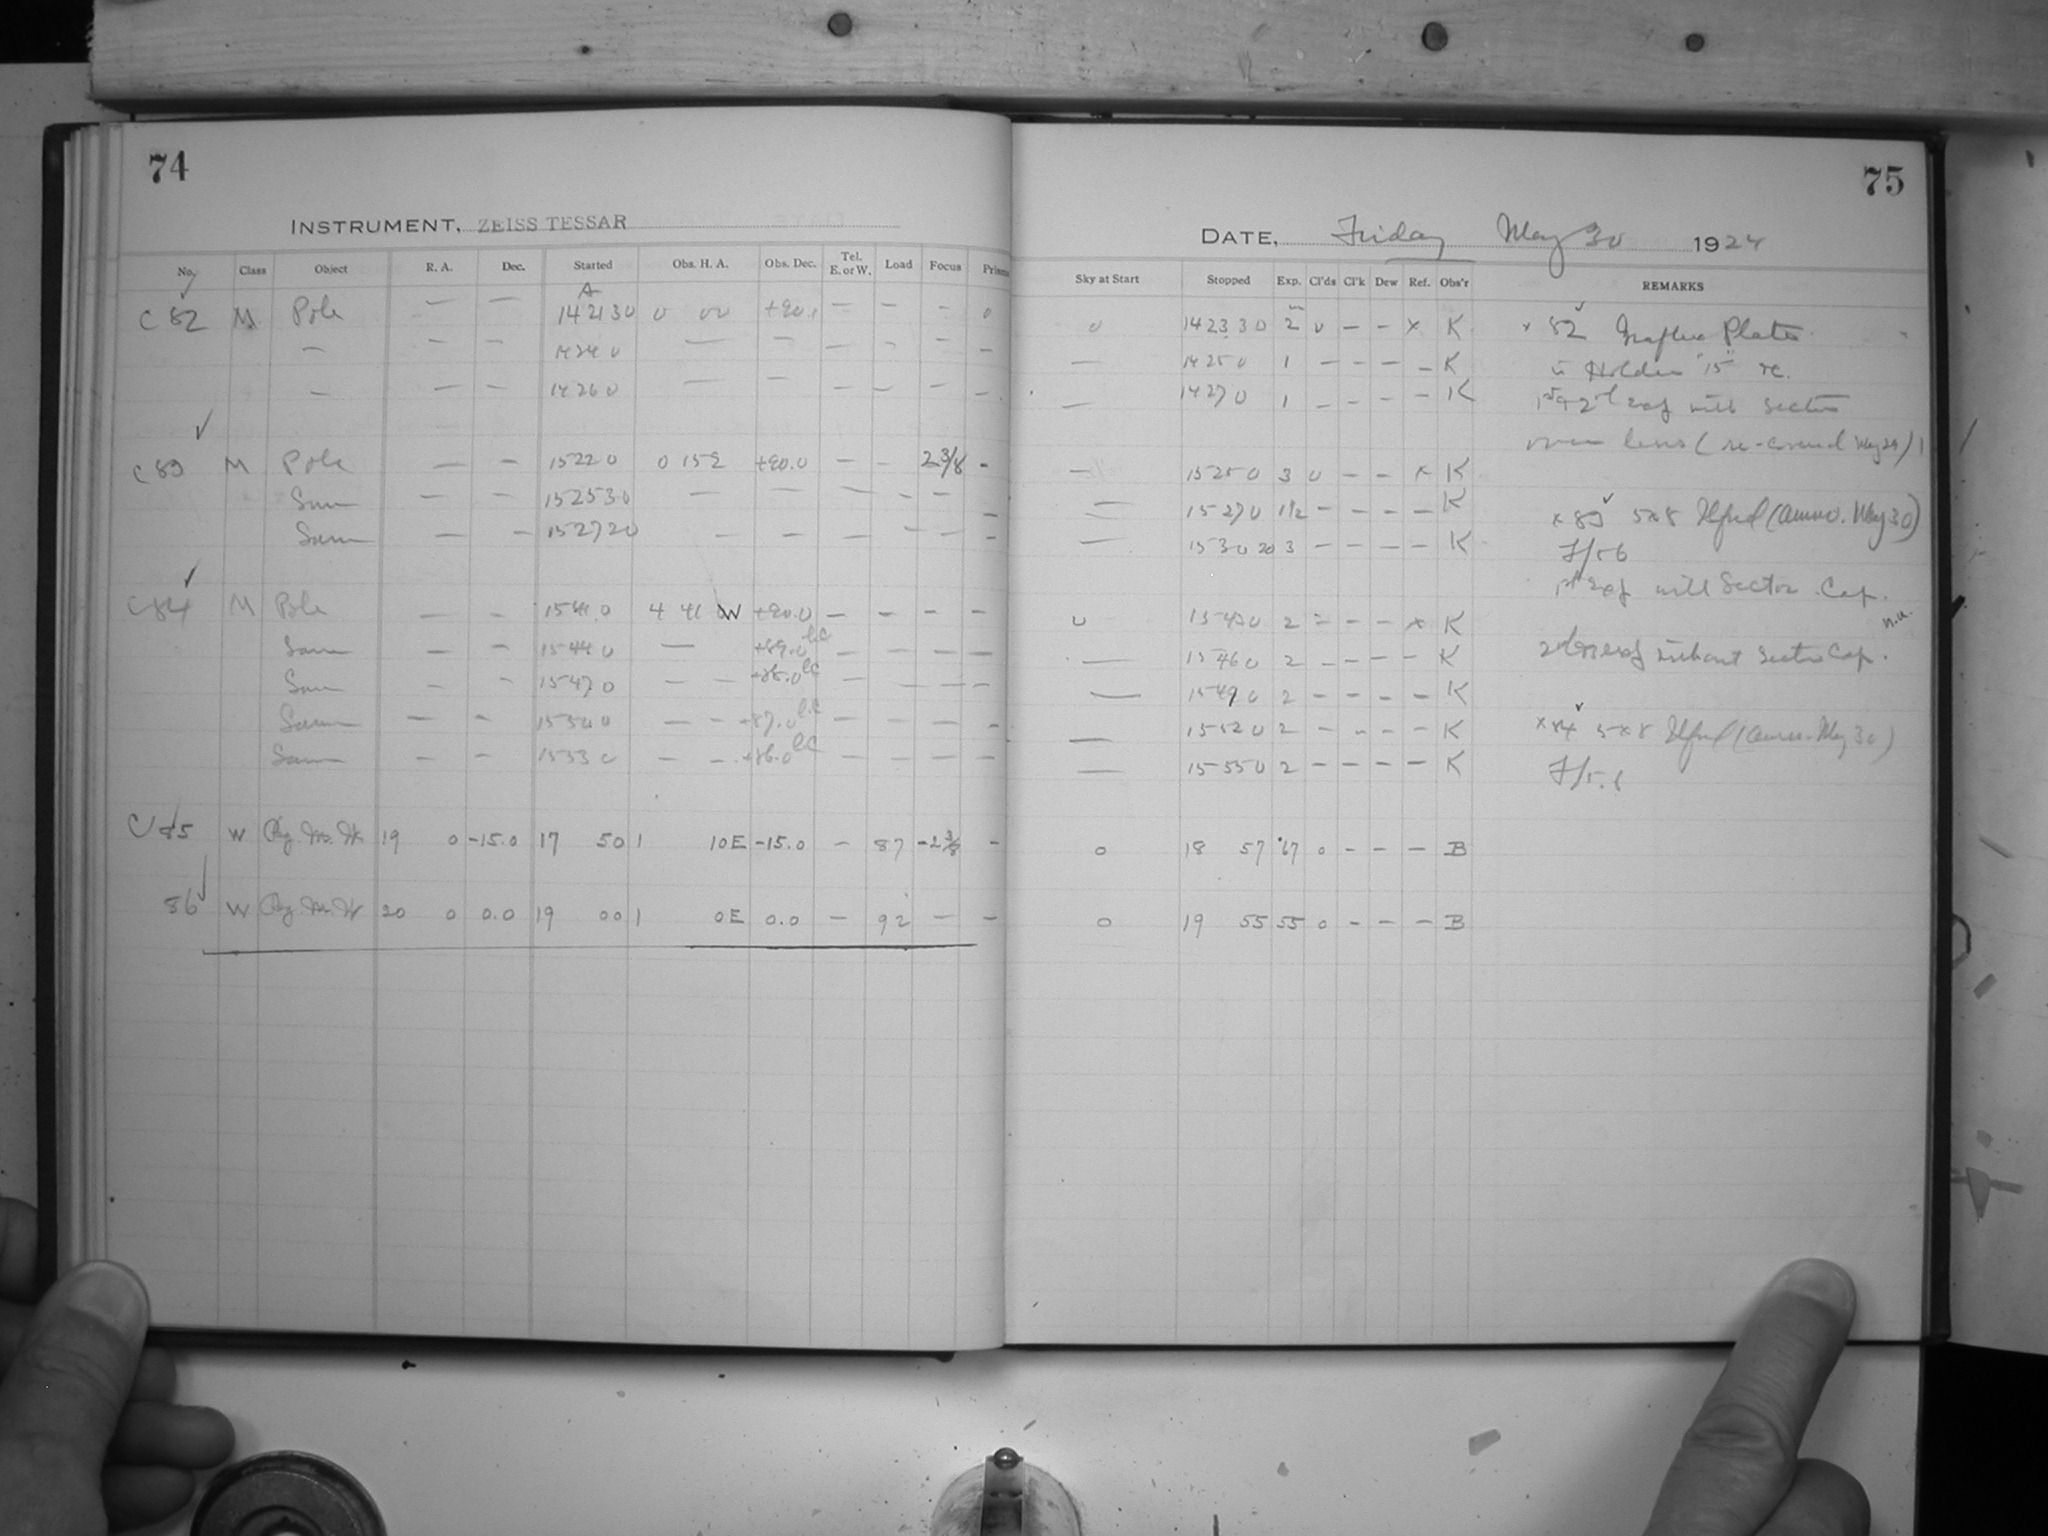 74
INSTRUMENT, ZEISS TESSAR
No. Class Object R. A. Dec. Started Obs. H. A. Obs. Dec. Tel. E. or W. Load Focus Prism
C 82 M Pole — — 14 21 30 0 00 +90. — — – 0
— — — 14 24 0 — — — – — –
— — — 14 26 0 — — — — — –
C 83 M Pole — — 15 22 0 0 15 +90.0 — – 2 3/8 –
Same — — 15 25 30 — — — – — –
Same — — 15 27 20 – — — — — –
C 84 M Pole — – 15 41 0 4 41 W +90.0 – – – –
Same — – 15 44 0 — +89.0 l.C – – – –
Same – – 15 47 0 – – +88.0 l.C – – – –
Same — – — – +87.0 l.C – – – –
Same – – 15 53 0 – – +86.0 l.C – – – –
C 85 W 19 0 -15.0 17 50 1 10 E -15.0 – 87 -2 3/8 –
86 W 20 0 0.0 19 00 1 0 E 0.0 – 92 – –
75
DATE, Friday May 30 1924
Sky at Start Stopped Exp. Cl'ds Cl'k Dew Ref. Obs'r REMARKS
0 14 23 30 2 0 – – x K x 82 Graflex Plates
— 14 25 0 1 – – – – K in Holder "15"
— 14 27 0 1 – – – – K with sector
over lens (re-covered May 29)
— 15 25 0 3 0 – – x K
— 15 27 0 1 1/2 – – – – K x 83 5x8 Ilford (ammo. May 30)
— 15 30 20 3 – – – – K F/5.6
with Sector Cap.
0 15 43 0 2 – – – x K n.u.
— 15 46 0 2 – – – – K without Sector Cap.
— 15 49 0 2 – – – – K
— 15 52 0 2 – – – – K x 84 5x8 Ilford (ammo. May 30)
— 15 55 0 2 – – – – K F/5.6
0 18 57 67 0 – – – B
0 19 55 55 0 – – – B